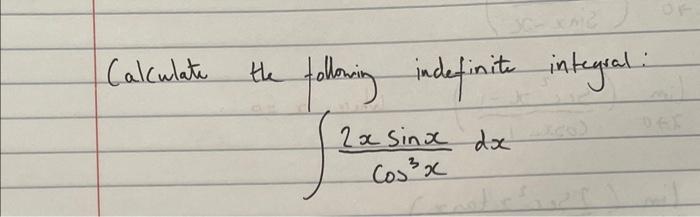 Calculate the following indefinite integral:
∫ 2x sinx / cos³x dx